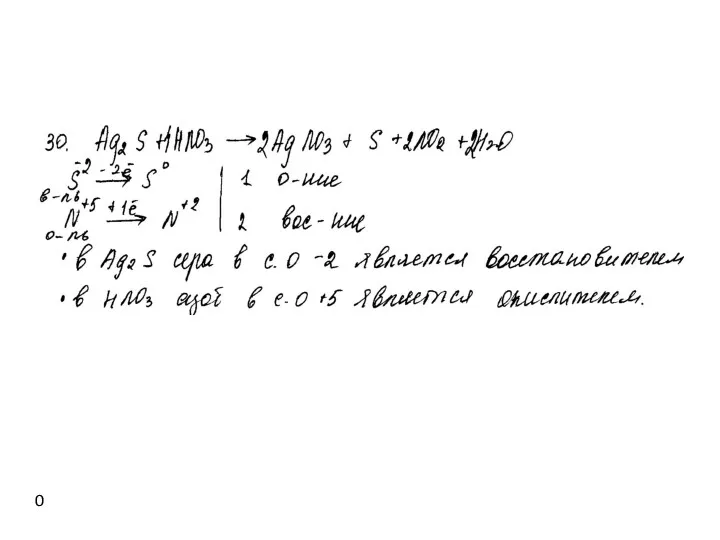 30. Ag₂S + 4HNO₃ → 2AgNO₃ + S + 2NO₂ + 2H₂O
S⁻² -2ē → S⁰ | 1 о-ние
в-ль
N⁺⁵ +1ē → N⁺² | 2 вос-ние
о-ль
• в Ag₂S сера в с.О -2 является восстановителем
• в HNO₃ азот в с.О +5 является окислителем.
0